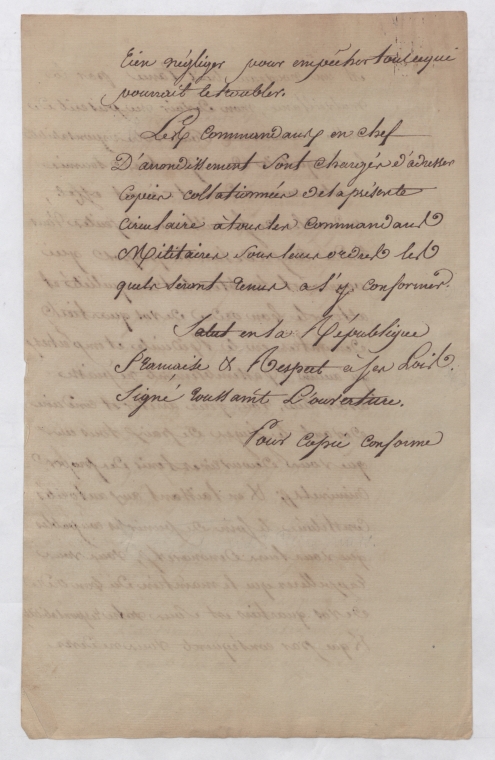 Rien négliger pour empêcher tout ce qui
pourrait le troubler.
Les commandans en chef
D'arrondissement sont charges d'adresser
copies collationnées de la présente
circulaire à tous les commandans
Militaires sous leurs ordres les
quels seront tenus a s'y conformer.
Salut en la République
francaise & Respect à ses Loix.
Signé Toussaint Louverture.
Pour copie conforme